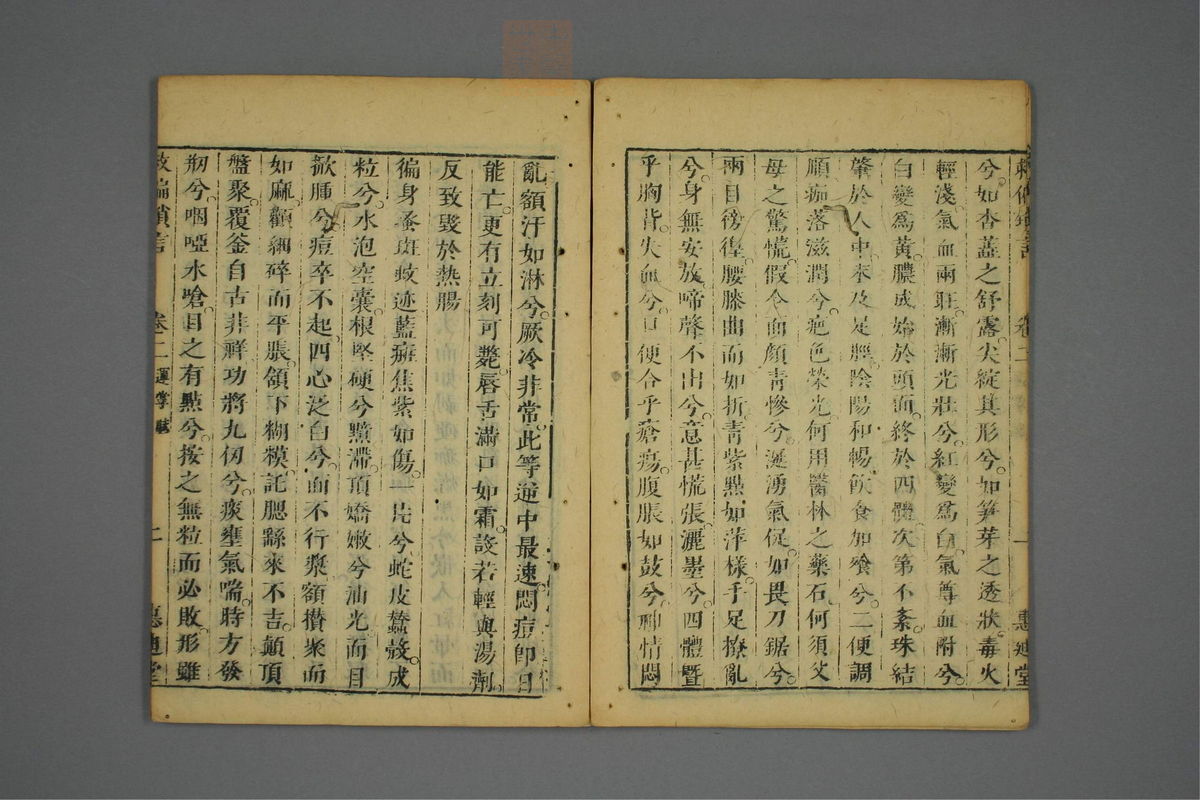 兮如杏蕋之舒露尖綻其形兮如笋芽之透狀毒火
輕淺氣血兩旺漸漸光壯兮紅變為白氣尊血附兮
白變為黃膿或始於頭面終於四體次第不紊珠結
肇於人中來及足脛陰陽和暢飲食如飱兮二便調
順痂落滋潤兮疤色榮光何用醫林之藥石何須父
母之驚慌假令面顏青慘兮涎湧氣促如畏刀鋸兮
兩目徬徨腰膝曲而如折青紫點如萍樣手足撩亂
兮身無安放啼聲不出兮意甚慌張灑墨兮四體暨
乎胸背失血兮口便合乎瘡瘍腹脹如鼓兮神情悶
卷二 一 惠迪堂
亂額汗如淋兮厥冷非常此等逆中最速悶痘即日
能亡更有立刻可斃唇舌滿口如霜誤若輕與湯劑
反致毀於熱腸
徧身蚤斑蚊迹藍癍焦紫如傷一片兮蛇皮蠶殼成
粒兮水泡空囊根堅硬兮黯滯頂嬌嫩兮油光面目
歘腫兮痘卒不起四心泛白兮面不行漿額攢聚而
如麻顴細碎而平脹頷下糊模託腮繇來不吉顛頂
盤聚覆釜自古非祥功將九仞兮痰壅氣喘時方發
刱兮咽啞水嗆目之有點兮按之無粒而必敗形雖
救偏瑣言 卷二 運掌賦 二 惠迪堂